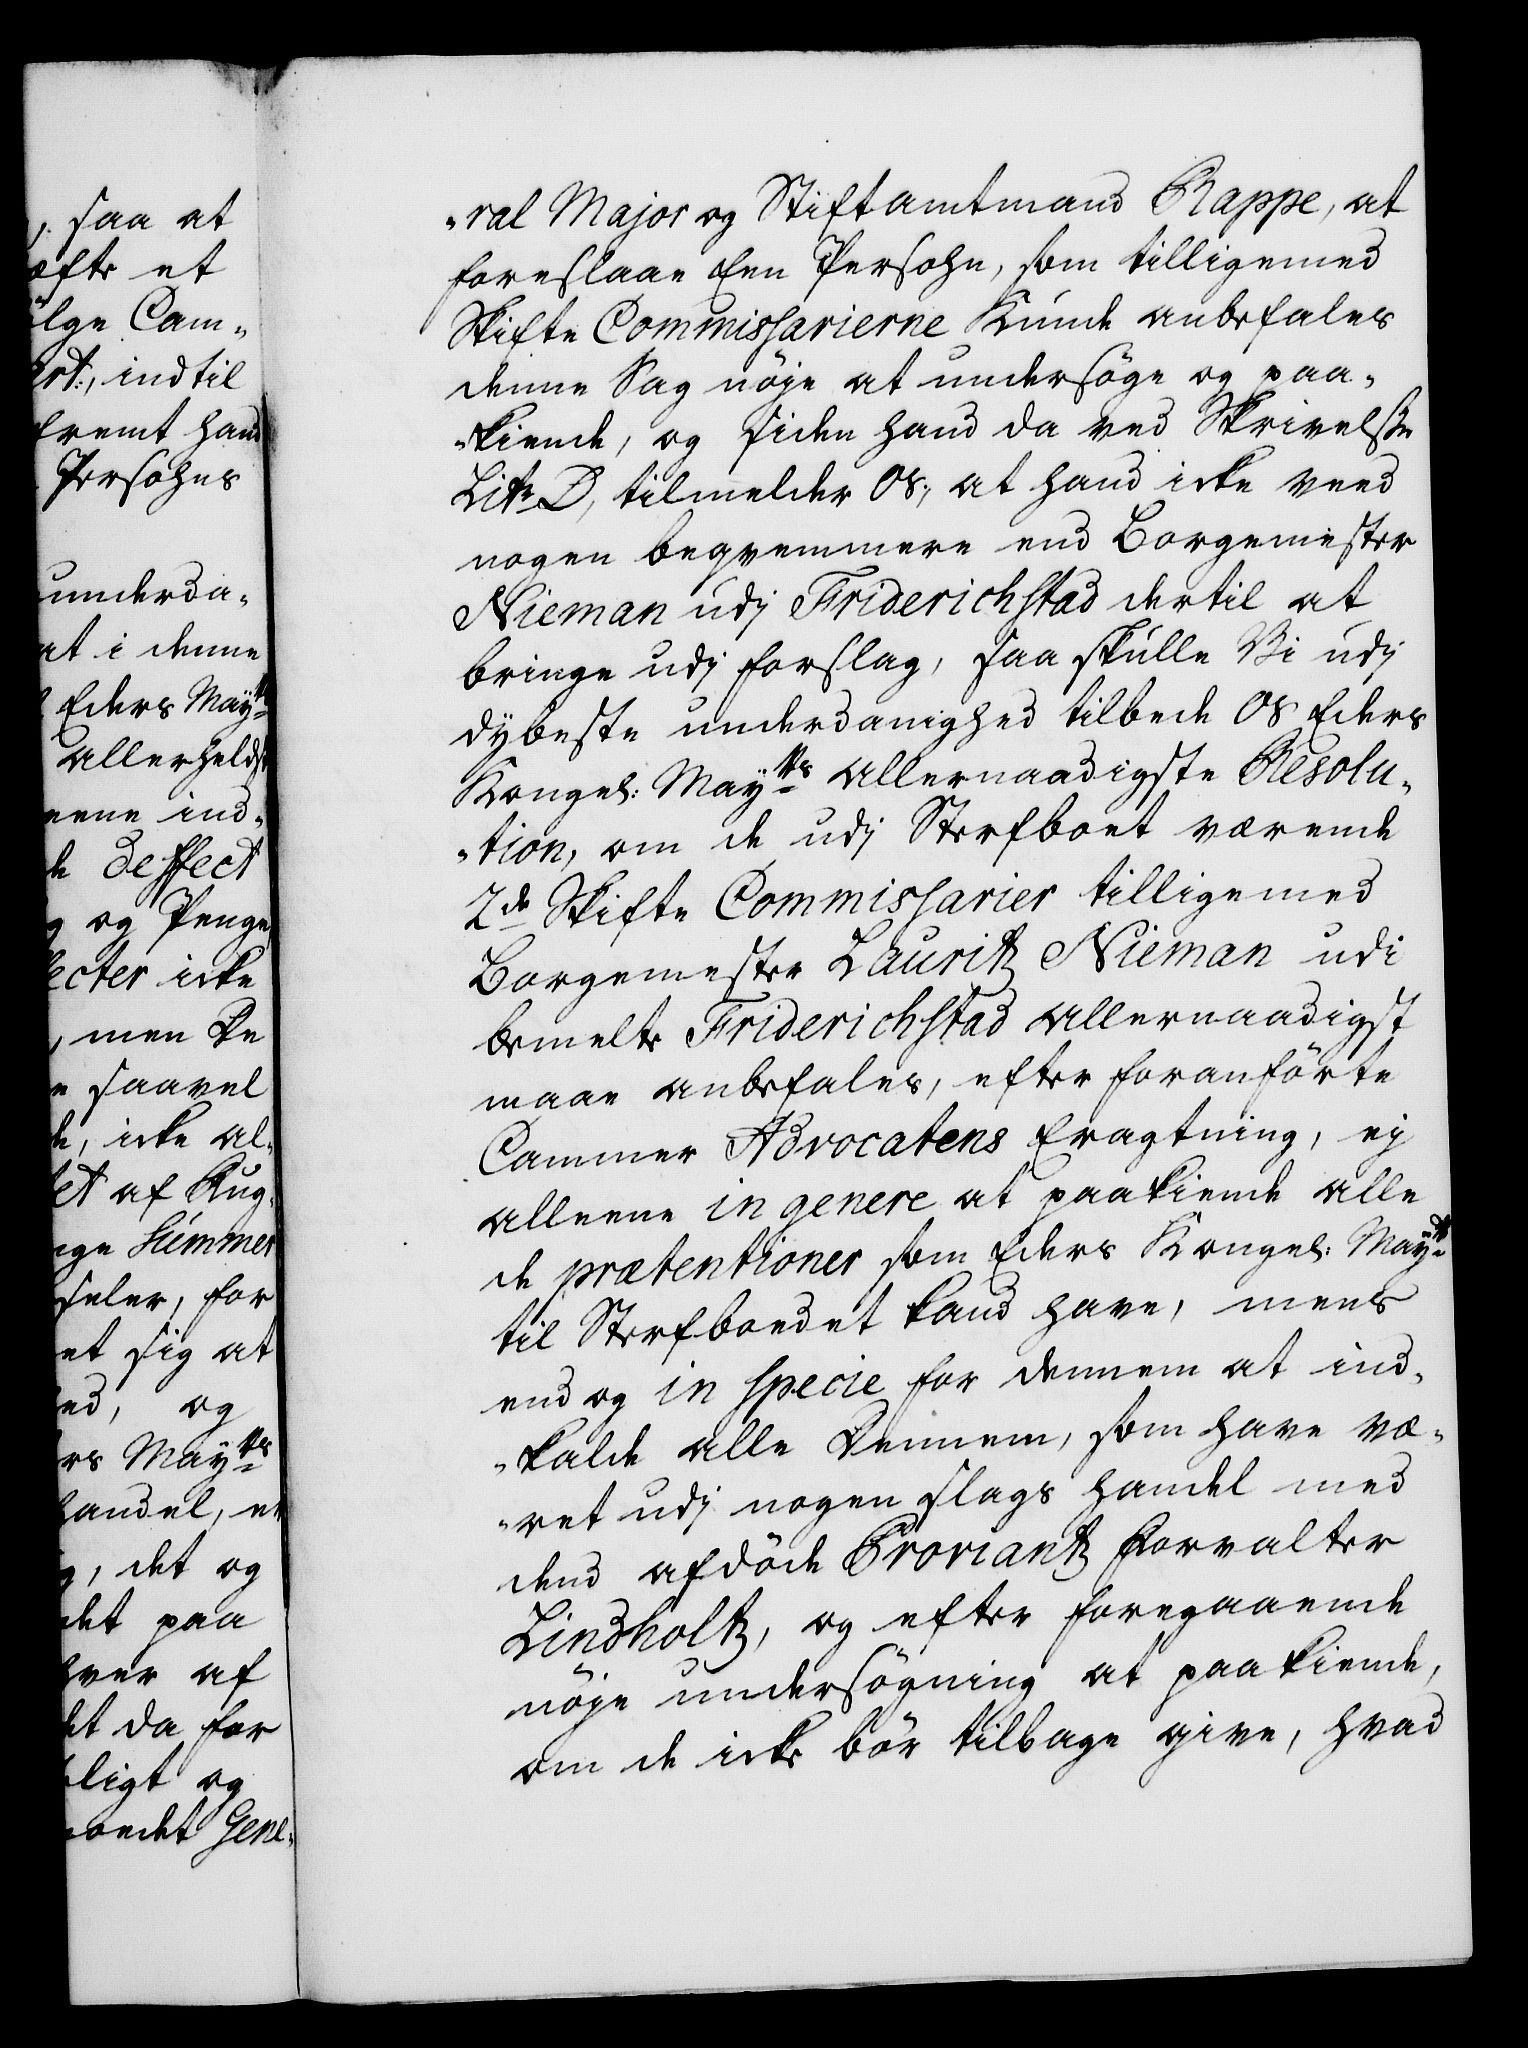 , saa at
æfte et
ölge Cam-
ert:, indtil
fremt hand
Persohns
underda-
at i denne
Eders May:ts
allerheldst
eene ind-
de deffect
og Penge
ecter icke
, men De
saavel
de, icke al-
et af Rug-
nge Summer
seler, for
et sig at
ed, og
rs May:ts
handel, er
, det og
det paa
hver af
et da for
ligt og
ordet Gene-
-ral Major og Stiftamtmand Rappe, at
foreslaae Een Persohn, som tilligemed
Skifte Commissarierne Kunde anbefales
denne Sag nöje at undersöge og paa-
-kiende, og siden hand da ved Skrivelse
Litr D, tilmelder Os, at hand icke veed
nogen beqvemmere end Borgemester
Nieman udj Friderichstad dertil at
bringe udj forslag, saa skulle Vi udj
dybeste underdanighed tilbede Os Eders
Kongel: May:ts allernaadigste Resolu-
-tion, om de udj Sterfboet værende
2de Skifte Commissarier tilligemed
Borgemester Lauritz Nieman udi
bemelte Friderichstad allernaadigst
maae anbefales, efter foranförte
Cammer Advocatens Eragtning, ej
alleene in genere at paakiende alle
de prætentioner som Eders Kongel: May:t
til Sterfboedet kand have, mens
end og in specie for dennem at ind-
-kalde alle Dennem, som have væ-
-ret udj nogen slags handel med
dend afdöde Proviantz Forvalter
Lindholtz, og efter foregaaende
nöje undersögning at paakiende,
om de icke bör tilbage give, hvad